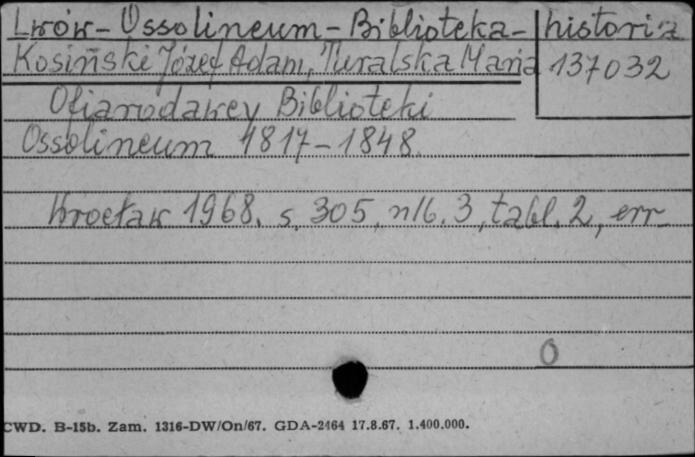 Lwów - Ossolineum - Biblioteka - historia
Kosiński Józef Adam, Turalska Maria 137032
Ofiarodawcy Biblioteki
Ossolineum 1817-1848.
Wrocław 1968. s. 305, nlb. 3, tabl. 2, err.
0
CWD. B-15b. Zam. 1316-DW/On/67. GDA-2464 17.8.67. 1.400.000.